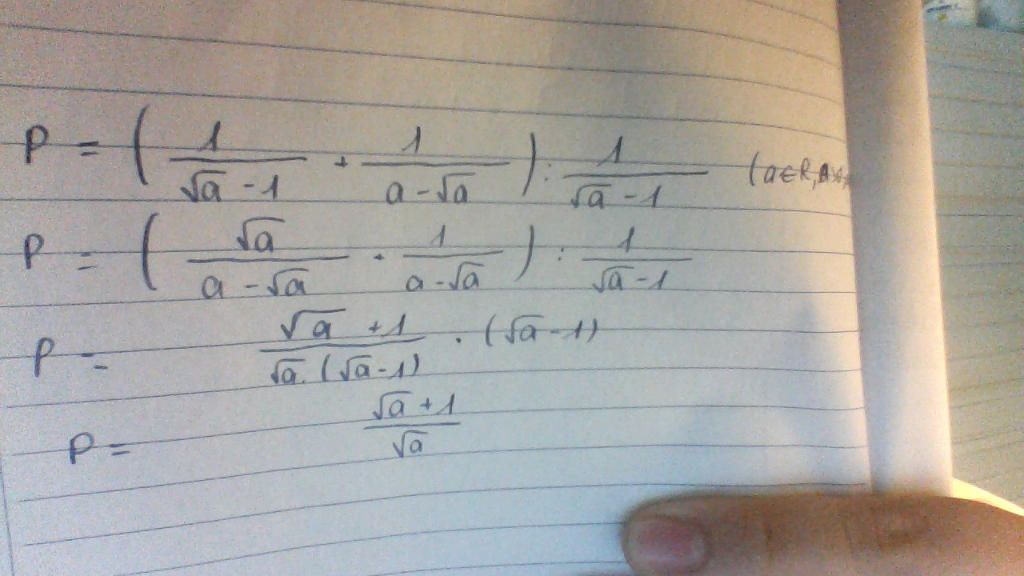 P = ( 1/(√a - 1) + 1/(a - √a) ) : 1/(√a - 1) (a ∈ R,
P = ( √a/(a - √a) + 1/(a - √a) ) : 1/(√a - 1)
P = (√a + 1)/(√a . (√a - 1)) . (√a - 1)
P = (√a + 1)/√a